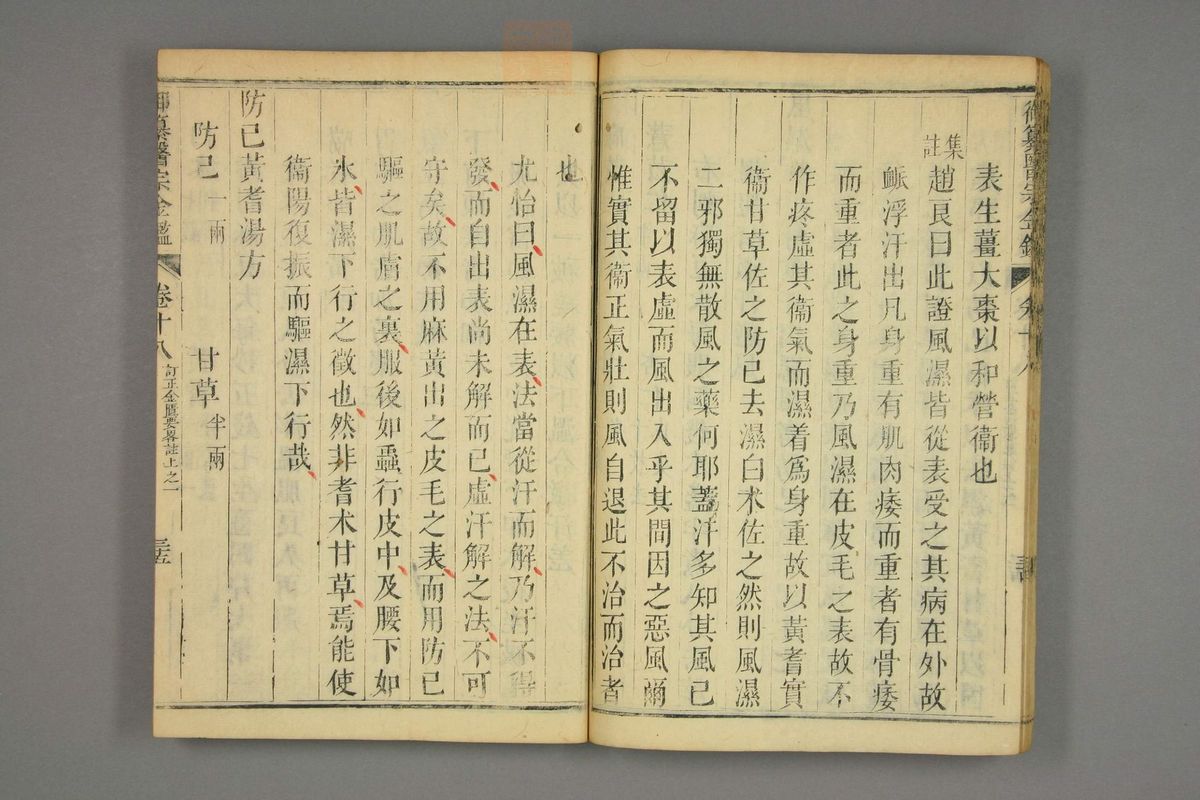 御纂醫宗金鑑 卷十八
表生薑大棗以和營衞也
集註
趙良曰此證風濕皆從表受之其病在外故
脈浮汗出凡身重有肌肉痿而重者有骨痿
而重者此之身重乃風濕在皮毛之表故不
作疼虛其衞氣而濕着爲身重故以黃耆實
衞甘草佐之防己去濕白朮佐之然則風濕
二邪獨無散風之藥何耶蓋汗多知其風已
不留以表虛而風出入乎其間因之惡風爾
惟實其衞正氣壯則風自退此不治而治者
也
尤怡曰風濕在表法當從汗而解乃汗不得
發而自出表尚未解而已虛汗解之法不可
守矣故不用麻黃出之皮毛之表而用防己
驅之肌膚之裏服後如蟲行皮中及腰下如
氷皆濕下行之徵也然非耆朮甘草焉能使
衞陽復振而驅濕下行哉
防己黃耆湯方
防己一兩 甘草半兩
御纂醫宗金鑑 卷十八 訂正金匱要畧註上之一 三五